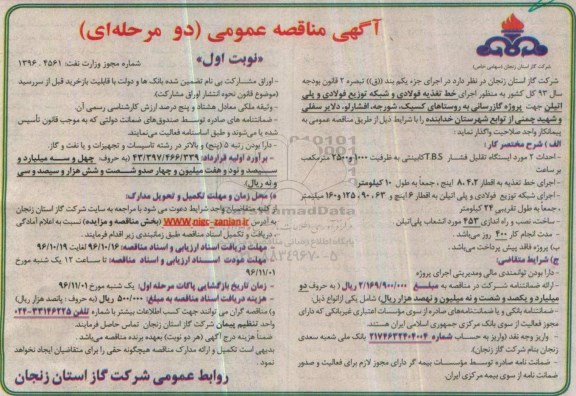 آگهی مناقصه عمومی (دو مرحله‌ای)
شرکت گاز استان زنجان (سهامی خاص)
«نوبت اول»
شماره مجوز وزارت نفت: ۴۵۶۱ .۱۳۹۶
شرکت گاز استان زنجان در نظر دارد در اجرای جزء یکم بند ((ق)) تبصره ۲ قانون بودجه
سال ۹۳ کل کشور به منظور اجرای خط تغذیه فولادی و شبکه توزیع فولادی و پلی
اتیلن جهت پروژه گازرسانی به روستاهای کسیک، شورجه، افشارلو، دلایر سفلی
و شهید چمنی از توابع شهرستان خدابنده را با شرایط ذیل از طریق مناقصه عمومی به
پیمانکار واجد صلاحیت واگذار نماید:
الف) شرح مختصر کار:
- احداث ۲ مورد ایستگاه تقلیل فشار T.B.S کابینتی به ظرفیت ۱۰۰۰ و ۲۵۰۰ مترمکعب
بر ساعت
- اجرای خط تغذیه به اقطار ۲، ۴، ۸ اینچ، جمعاً به طول ۱۰ کیلومتر
- اجرای شبکه توزیع فولادی و پلی اتیلن به اقطار ۶ اینچ و ۶۳، ۹۰، ۱۲۵ و ۱۶۰ میلیمتر
، جمعاً به طول تقریبی ۲۴ کیلومتر
- ساخت، نصب و راه اندازی ۴۵۳ مورد انشعاب پلی‌اتیلن
- مدت انجام کار ۴۰۰ روز می‌باشد.
ب) پروژه فاقد پیش پرداخت می‌باشد.
ج) شرایط متقاضی:
- دارا بودن توانمندی مالی و مدیریتی اجرای پروژه
- ارائه ضمانتنامه شرکت در مناقصه به مبلغ ۲/۱۶۹/۹۰۰/۰۰۰ ریال (به حروف دو
میلیارد و یکصد و شصت و نه میلیون و نهصد هزار ریال) شامل یکی از انواع ذیل:
- ضمانتنامه بانکی و یا ضمانت‌نامه‌های صادره از سوی مؤسسات اعتباری غیربانکی که دارای
مجوز فعالیت از سوی بانک مرکزی جمهوری اسلامی ایران هستند.
- واریز وجه نقد (واریز به حساب شماره ۲۱۷۴۶۳۲۴۰۴۰۰۴ بانک ملی شعبه سعدی
زنجان بنام شرکت گاز زنجان).
- ضمانت نامه صادره توسط مؤسسات بیمه گر دارای مجوز لازم برای فعالیت و صدور
ضمانت نامه از سوی بیمه مرکزی ایران.
-اوراق مشارکت بی نام تضمین شده بانک ها و دولت با قابلیت بازخرید قبل از سررسید
(موضوع قانون نحوه انتشار اوراق مشارکت)
- وثیقه ملکی معادل هشتاد و پنج درصد ارزش کارشناسی رسمی آن
- ضمانتنامه های صادره توسط صندوق‌های ضمانت دولتی که به موجب قانون تأسیس
شده یا می‌شوند و طبق اساسنامه فعالیت می‌نمایند.
- دارا بودن رتبه ۵ (پنج) و بالاتر در رشته تاسیسات و تجهیزات و یا نفت و گاز.
- برآورد اولیه قرارداد: ۴۳/۳۹۷/۴۶۶/۳۳۹ (به حروف: چهل و سه میلیارد و
سیصد و نود و هفت میلیون و چهار صدو شصت و شش هزار و سیصد و سی
و نه ریال).
ه) محل زمان و مهلت تکمیل و تحویل مدارک:
کلیه متقاضیان واجد شرایط دعوت می شود با مراجعه به سایت شرکت گاز استان زنجان
به آدرس www.nigc-zanjan.ir (بخش مناقصه و مزایده) نسبت به اعلام آمادگی
، دریافت و تکمیل اسناد مناقصه طبق زمانبندی زیر اقدام فرمایند.
- مهلت دریافت اسناد ارزیابی و اسناد مناقصه: ۹۶/۱۰/۱۶ لغایت ۹۶/۱۰/۱۹
- مهلت عودت اسناد ارزیابی و اسناد مناقصه: تا ساعت ۱۲ یک شنبه مورخ
۹۶/۱۱/۰۱
- زمان تاریخ بازگشایی پاکات مرحله اول: یک شنبه مورخ ۹۶/۱۱/۰۱
- هزینه دریافت اسناد مناقصه به مبلغ: ۵۰۰/۰۰۰ ریال (به حروف: پانصد هزار ریال)
و) مناقصه گران می توانند جهت کسب اطلاعات بیشتر با شماره تلفن ۳۳۱۴۶۲۲۵-۰۲۴
واحد تنظیم پیمان شرکت گاز استان زنجان تماس حاصل فرمایند.
ضمناً هزینه درج آگهی (هر دو نوبت) بعهده برنده مناقصه می‌باشد.
بدیهی است تکمیل و ارائه مدارک مناقصه هیچگونه حقی را برای متقاضیان ایجاد نخواهد
نمود.
روابط عمومی شرکت گاز استان زنجان